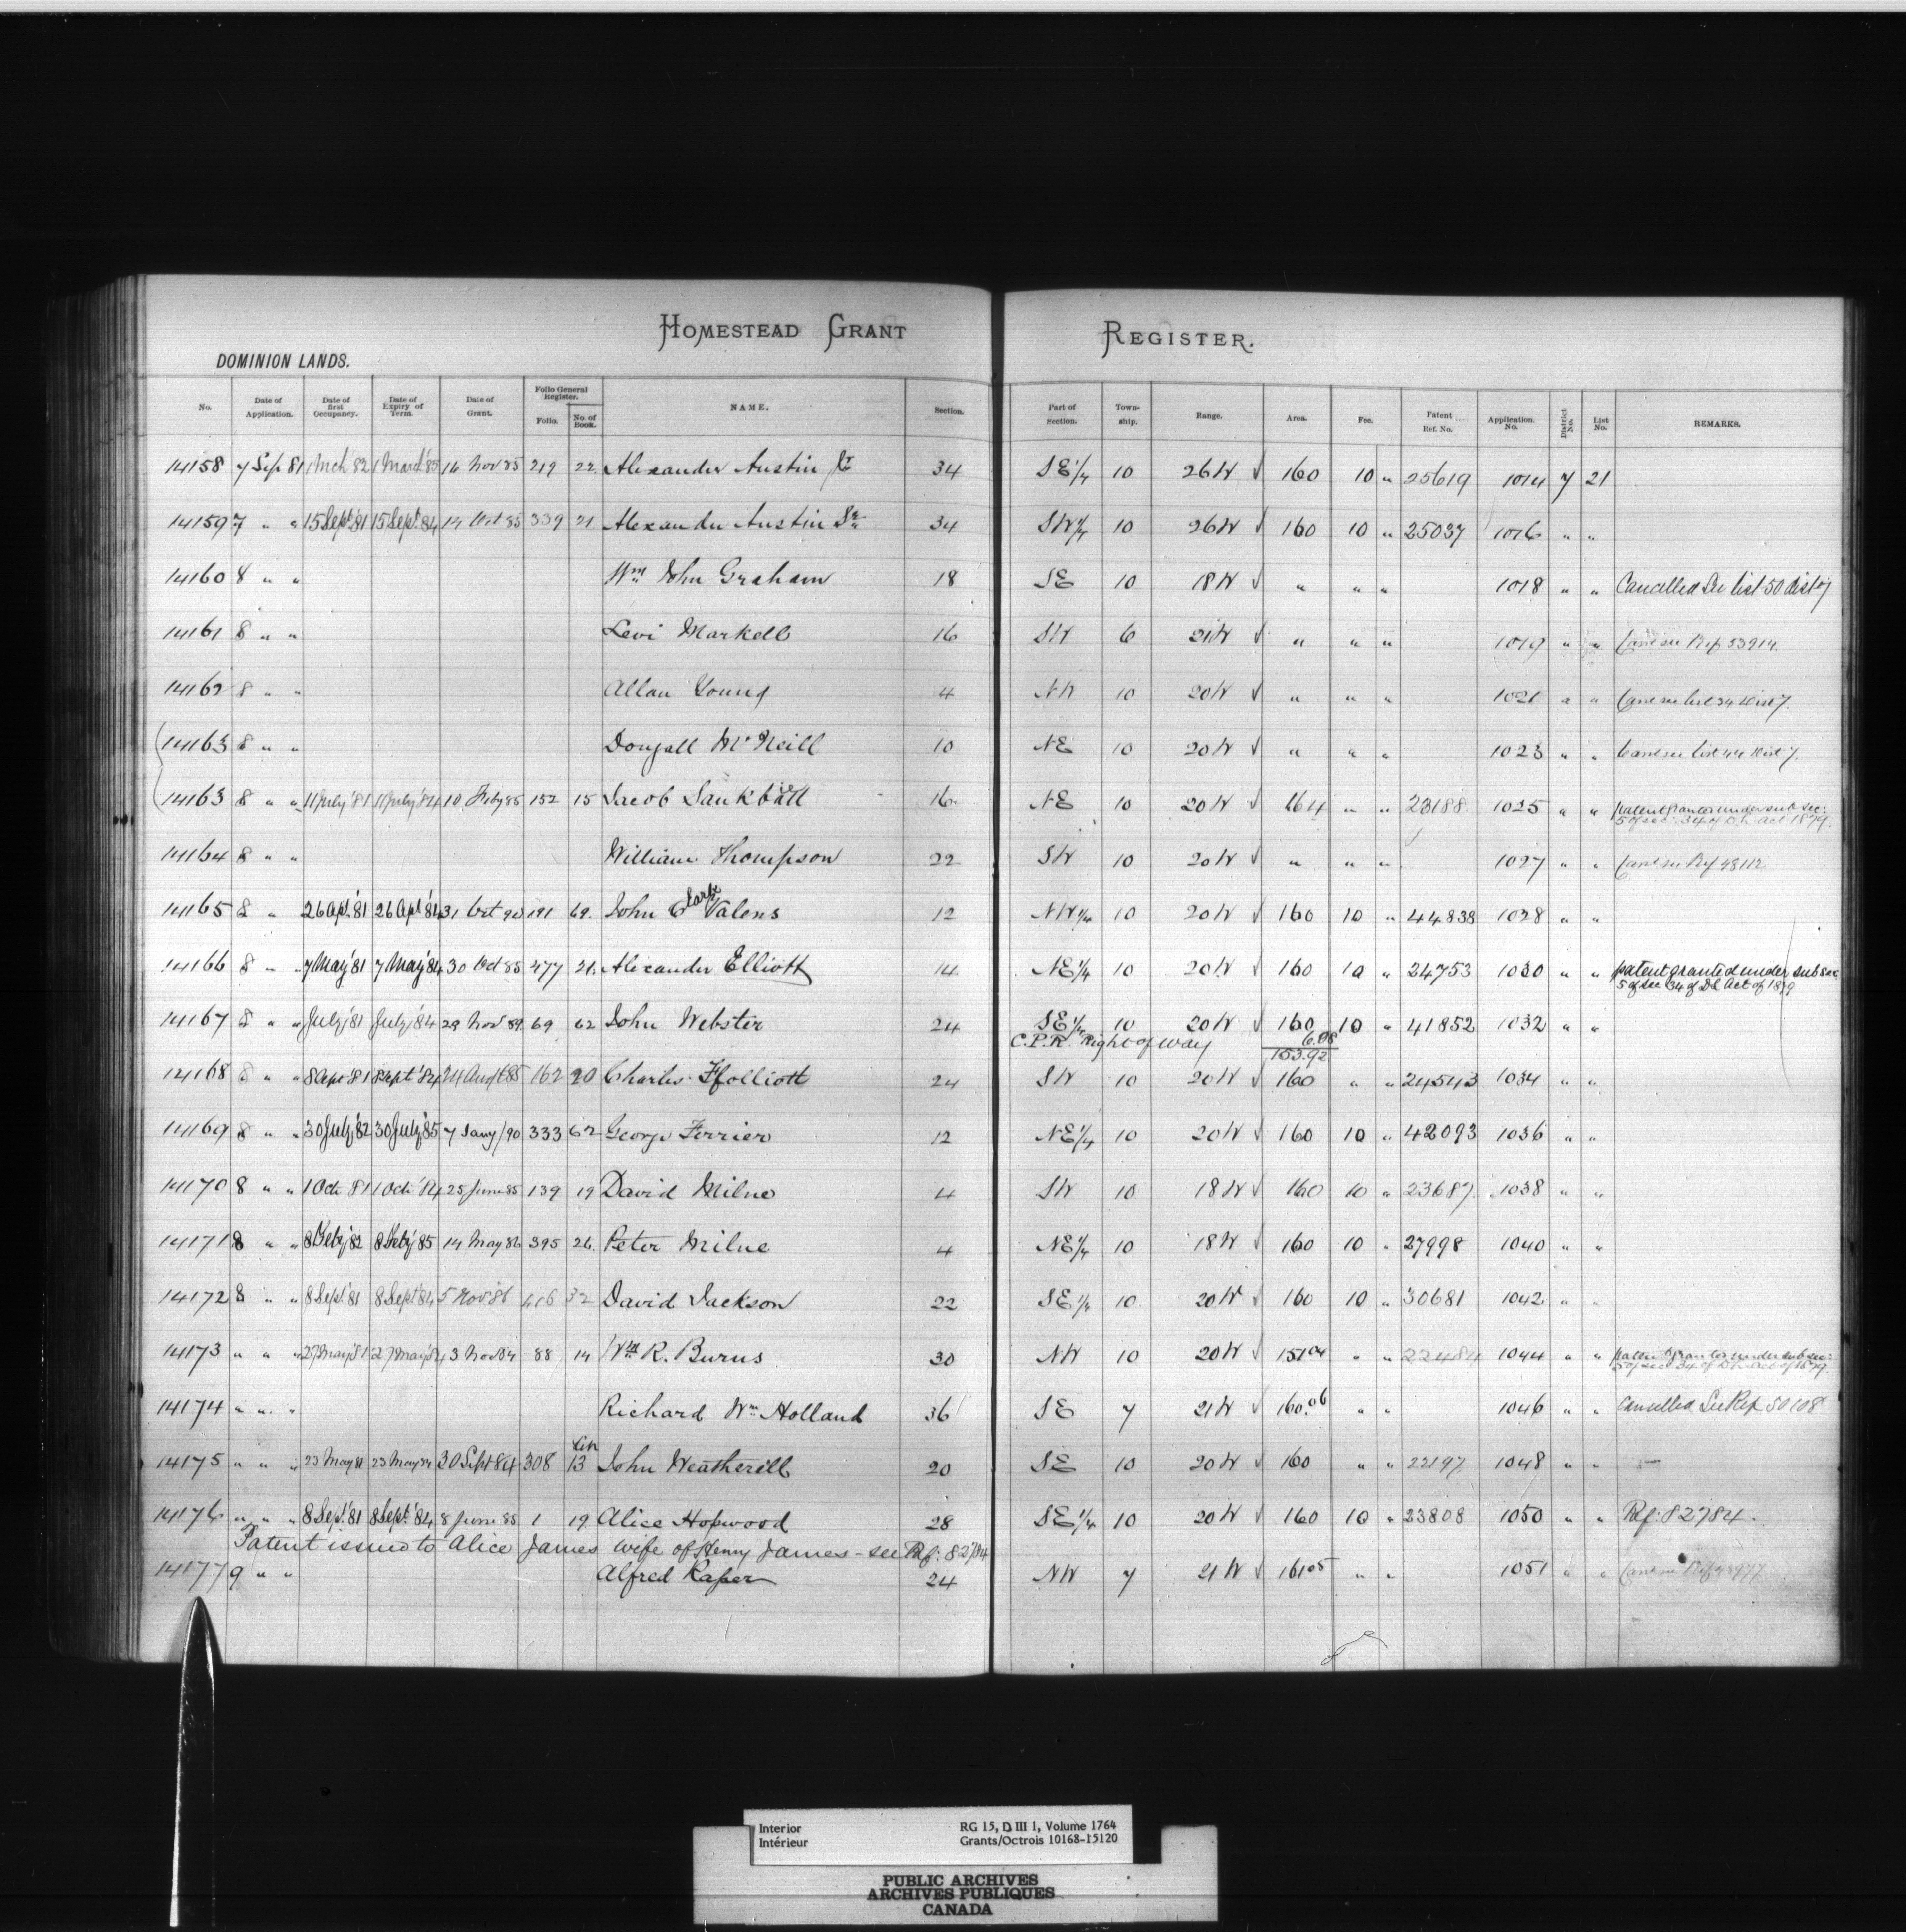 HOMESTEAD GRANT REGISTER.
DOMINION LANDS.
No. Date of Application. Date of first Occupancy. Date of Expiry of Term. Date of Grant. Folio General Register. Folio. No. of Book. NAME. Section. Part of Section. Township. Range. Area. Fee. Patent Ref. No. Application No. District No. List No. REMARKS.
14158 7 Sep 81 1 Mch 82 1 March '85 16 Nov 85 219 22 Alexander Austin Jr 34 SE 1/4 10 26 W √ 160 10 " 25619 1014 7 21
14159 7 " " 15 Sept '81 15 Sept. 84 14 Oct 85 339 21. Alexander Austin Sr 34 SW 1/4 10 26 W √ 160 10 " 25037 1016 " "
14160 8 " " Wm John Graham 18 SE 10 18 W √ " " " 1018 " " Cancelled See list 50 dist 7
14161 8 " " Levi Markell 16 SW 6 21 W √ " " " 1019 " " Canc see Ref 53914.
14162 8 " " Allan Young 4 NW 10 20 W √ " " " 1021 " " Canc see list 34 Dist 7.
14163 8 " " Dougall McNeill 10 NE 10 20 W √ " " " 1023 " " Canc see list 44 Dist 7.
14163 8 " " 11 July '81 11 July '84 10 Feby 85 152 15 Jacob 16 NE 10 20 W √ 164 " " 23188 1025 " " patent granted under sub sec:
5 of sec: 34 of D.L. Act 1879.
14164 8 " " William Thompson 22 SW 10 20 W √ " " " 1027 " " Canc see Ref 48112
14165 8 " 26 Apl. '81 26 Apl '84 31 Oct 90 191 69. John Clark Valens 12 NW 1/4 10 20 W √ 160 10 " 44838 1028 " "
14166 8 " " 7 May '81 7 May '84 30 Oct 85 477 21. Alexander Elliott 14 NE 1/4 10 20 W √ 160 10 " 24753 1030 " " patent granted under sub sec
5 of sec 34 of D.L. Act of 1879
14167 8 " " July '81 July '84 29 Nov 89 69 62 John Webster 24 SE 1/4 10 20 W √ 160 10 " 41852 1032 " "
C.P.R. Right of way 6.08
153.92
14168 8 " " 8 Apr 81 8 Sept '84 24 Augt 85 162 20 Charles Ffolliott 24 SW 10 20 W √ 160 " " 24543 1034 " "
14169 8 " " 30 July '82 30 July '85 7 Jany/90 333 62 George Ferrier 12 NE 1/4 10 20 W √ 160 10 " 42093 1036 " "
14170 8 " " 1 Oct 81 1 Oct '84 25 June 85 139 19 David Milne 4 SW 10 18 W √ 160 10 " 23687 1038 " "
14171 8 " " 8 Feby '82 8 Feby '85 14 May 86 395 26. Peter Milne 4 NE 1/4 10 18 W √ 160 10 " 27998 1040 " "
14172 8 " " 8 Sept '81 8 Sept '84 5 Nov '86 416 32 David Jackson 22 SE 1/4 10 20 W √ 160 10 " 30681 1042 " "
14173 " " " 27 May '81 27 May '84 3 Nov 84 88 14 Wm R. Burns 30 NW 10 20 W √ 151 04 " " 22484 1044 " " patent granted under sub sec:
5 of sec 34 of D.L. Act of 1879.
14174 " " " Richard Wm Holland 36 SE 7 21 W √ 160.06 " " 1046 " " Cancelled See Ref 50108
14175 " " " 23 May 81 23 May 84 30 Sept 84 308 13 John Weatherill 20 SE 10 20 W √ 160 " " 22197 1048 " "
14176 " " " 8 Sep. '81 8 Sept. '84 8 June 85 1 19. Alice Hopwood 28 SE 1/4 10 20 W √ 160 10 " 23808 1050 " " Rf: 82784.
Patent issued to Alice James wife of Henry James - see Rf: 82784
14177 9 " " Alfred Raper 24 NW 7 21 W √ 161 05 " " 1051 " " Canc see Ref
Interior
Intérieur
RG 15, D III 1, Volume 1764
Grants/Octrois 10168-15120
PUBLIC ARCHIVES
ARCHIVES PUBLIQUES
CANADA